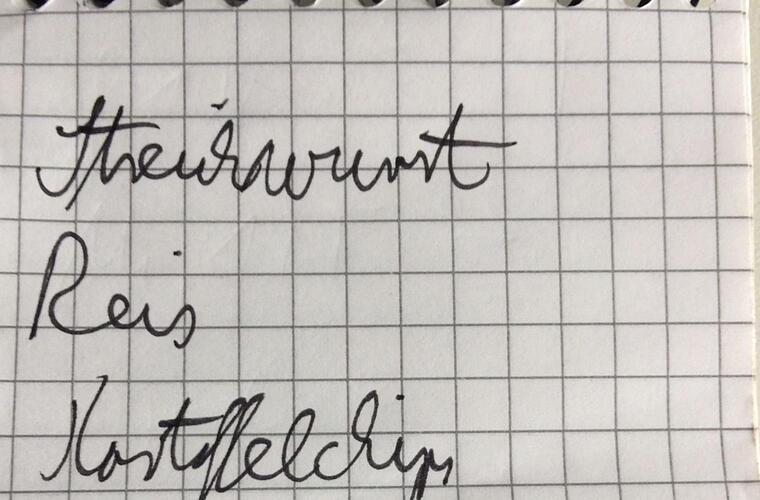 Streichwurst
Reis
Kartoffelchips